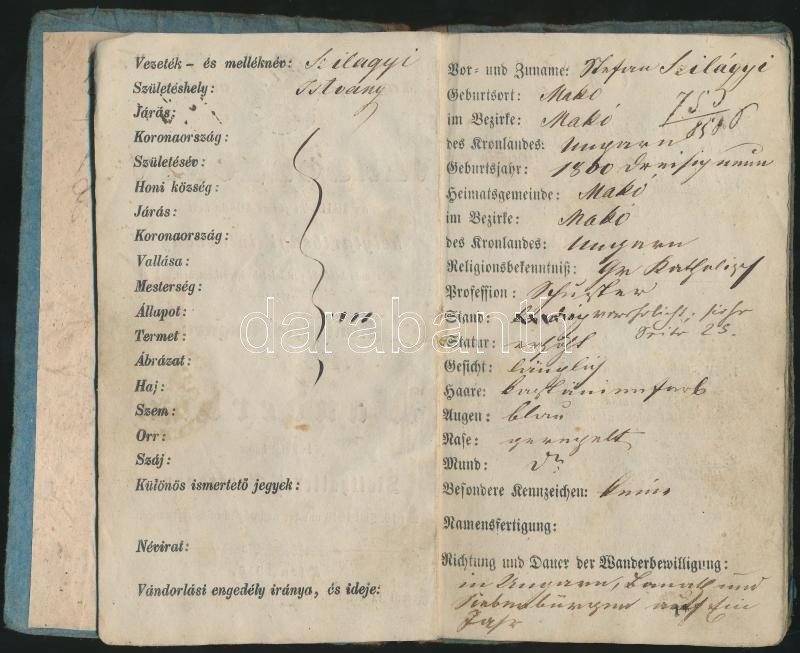 Vezeték- és melléknév: Szilagyi
Születéshely: Istvány
Járás:
Koronaország:
Születésév:
Honi község:
Járás:
Koronaország:
Vallása:
Mesterség:
Állapot:
Termet:
Ábrázat:
Haj:
Szem:
Orr:
Száj:
Különös ismertető jegyek:
Névirat:
Vándorlási engedély iránya, és ideje:
darabanth
Vor- und Zuname: Stefan Szilágyi
Geburtsort: Makó
im Bezirke: Makó
755
des Kronlandes: Ungarn
Geburtsjahr: 1800 dreisig neun
Heimatsgemeinde: Makó
im Bezirke: Makó
des Kronlandes: Ungarn
Religionsbekenntniß: Gr Katholisch
Profession: Schuster
Stand: verehelicht, siehe
Seite 23.
Statur:
Gesicht: länglich
Haare: kastanienfarb
Augen: blau
Nase: geregelt
Mund:
Besondere Kennzeichen: keine
Namensfertigung:
Richtung und Dauer der Wanderbewilligung:
in Ungarn, Banat und
Siebenbürgen auf Ein
Jahr